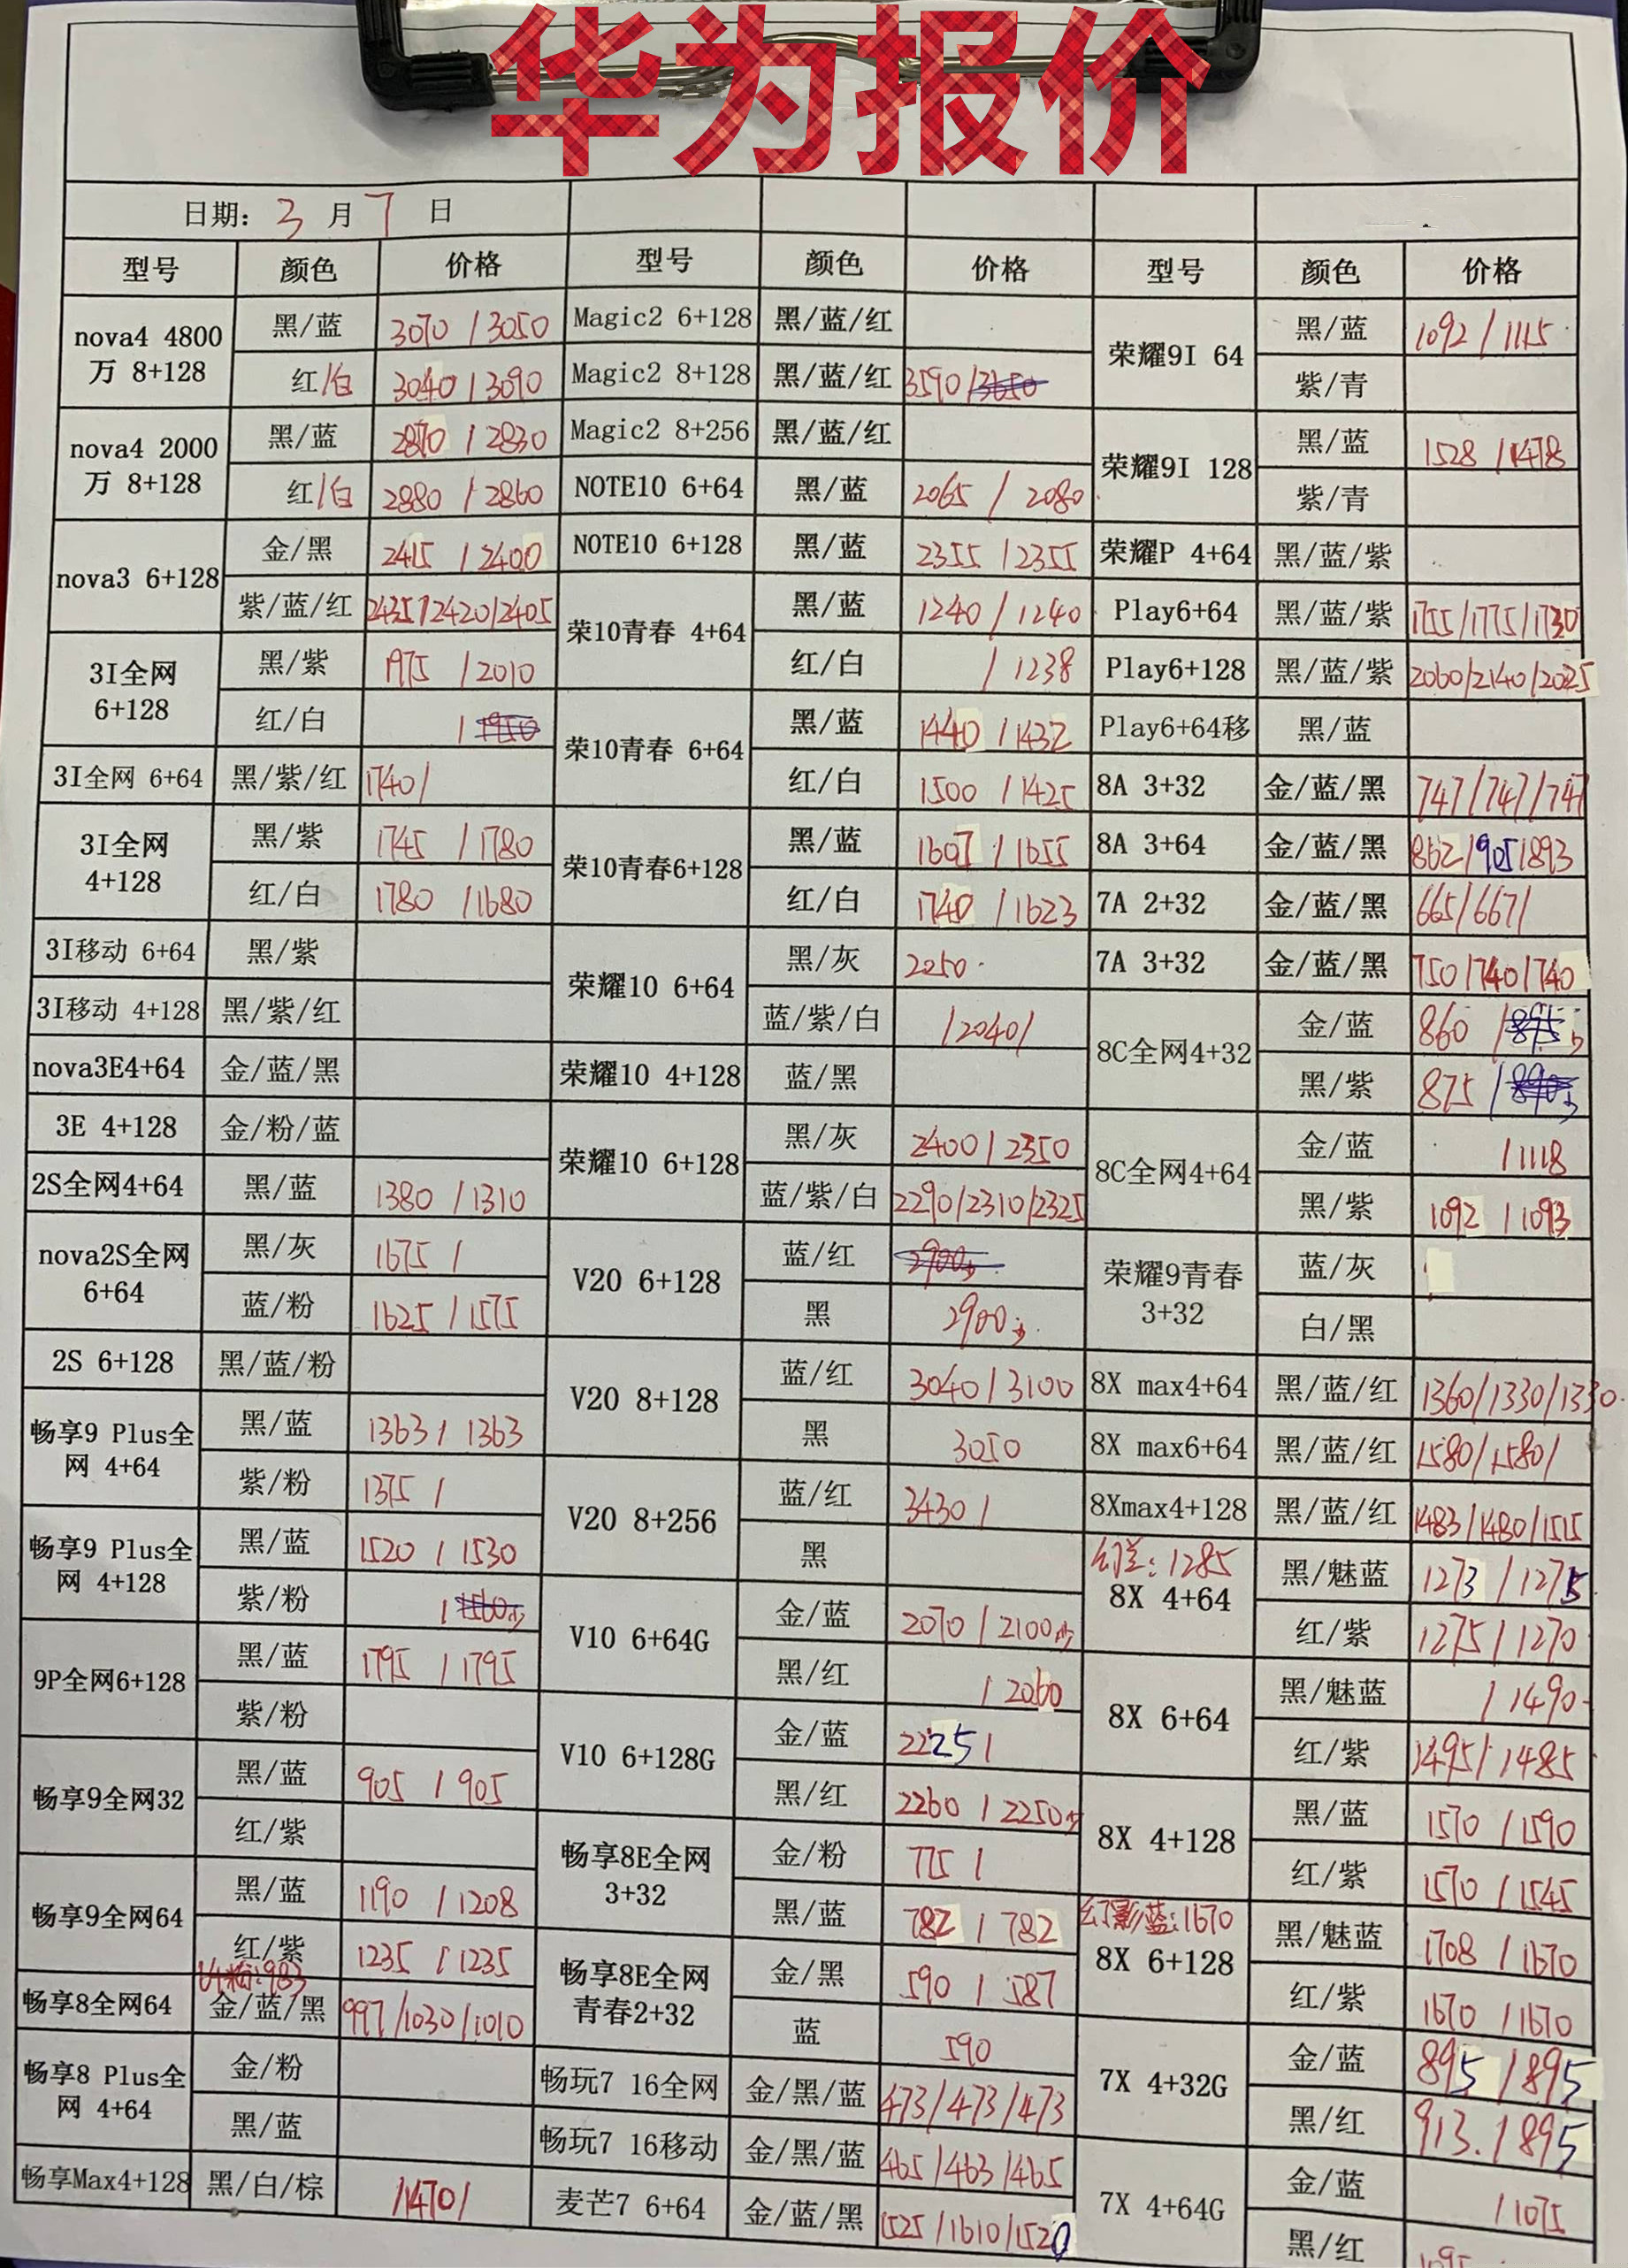 华为报价
日期: 3 月 7 日
型号 颜色 价格 型号 颜色 价格 型号 颜色 价格
nova4 4800万 8+128 黑/蓝 3070 / 3050
红/白 3040 / 3090
nova4 2000万 8+128 黑/蓝 2870 / 2830
红/白 2880 / 2860
nova3 6+128 金/黑 2415 / 2400
紫/蓝/红 2435/2420/2405
3I全网 6+128 黑/紫 1975 / 2010
红/白 /
3I全网 6+64 黑/紫/红 1740/
3I全网 4+128 黑/紫 1745 / 1780
红/白 1780 / 1680
3I移动 6+64 黑/紫
3I移动 4+128 黑/紫/红
nova3E4+64 金/蓝/黑
3E 4+128 金/粉/蓝
2S全网4+64 黑/蓝 1380 / 1310
nova2S全网 6+64 黑/灰 1675 /
蓝/粉 1625 / 1575
2S 6+128 黑/蓝/粉
畅享9 Plus全网 4+64 黑/蓝 1363 / 1363
紫/粉 1375 /
畅享9 Plus全网 4+128 黑/蓝 1520 / 1530
紫/粉 /
9P全网6+128 黑/蓝 1795 / 1795
紫/粉
畅享9全网32 黑/蓝 905 / 905
红/紫
畅享9全网64 黑/蓝 1190 / 1208
红/紫 1235 / 1235
畅享8全网64 金/蓝/黑 997/1030/1010
畅享8 Plus全网 4+64 金/粉
黑/蓝
畅享Max4+128 黑/白/棕 /1470/
Magic2 6+128 黑/蓝/红
Magic2 8+128 黑/蓝/红 3590/3650
Magic2 8+256 黑/蓝/红
NOTE10 6+64 黑/蓝 2065 / 2080
NOTE10 6+128 黑/蓝 2355 / 2355
荣10青春 4+64 黑/蓝 1240 / 1240
红/白 / 1238
荣10青春 6+64 黑/蓝 1440 / 1432
红/白 1500 / 1425
荣10青春6+128 黑/蓝 1607 / 1655
红/白 1740 / 1623
荣耀10 6+64 黑/灰 2250
蓝/紫/白 /2040/
荣耀10 4+128 蓝/黑
荣耀10 6+128 黑/灰 2400 / 2350
蓝/紫/白 2290/2310/2325
V20 6+128 蓝/红 2900少
黑 2900少
V20 8+128 蓝/红 3040 / 3100
黑 3050
V20 8+256 蓝/红 3430 /
黑
V10 6+64G 金/蓝 2070 / 2100少
黑/红 / 2060
V10 6+128G 金/蓝 2225 /
黑/红 2260 / 2250少
畅享8E全网 3+32 金/粉 775 /
黑/蓝 782 / 782
畅享8E全网 青春2+32 金/黑 590 / 587
蓝 590
畅玩7 16全网 金/黑/蓝 473/473/473
畅玩7 16移动 金/黑/蓝 465/463/465
麦芒7 6+64 金/蓝/黑 1525/1610/1520
荣耀9I 64 黑/蓝 1092 / 1115
紫/青
荣耀9I 128 黑/蓝 1528 / 1478
紫/青
荣耀P 4+64 黑/蓝/紫
Play6+64 黑/蓝/紫 1755/1775/1730
Play6+128 黑/蓝/紫 2060/2140/2025
Play6+64移 黑/蓝
8A 3+32 金/蓝/黑 747/747/747
8A 3+64 金/蓝/黑 862/905/893
7A 2+32 金/蓝/黑 665/667/
7A 3+32 金/蓝/黑 750/740/740
8C全网4+32 金/蓝 860 / 895少
黑/紫 875 / 890少
8C全网4+64 金/蓝 / 1118
黑/紫 1092 / 1093
荣耀9青春 3+32 蓝/灰
白/黑
8X max4+64 黑/蓝/红 1360/1330/1330
8X max6+64 黑/蓝/红 1580/1580/
8Xmax4+128 黑/蓝/红 1483/1480/1515
8X 4+64 黑/魅蓝 1273 / 1275
红/紫 1275 / 1270
8X 6+64 黑/魅蓝 / 1490
红/紫 1495 / 1485
8X 4+128 黑/蓝 1570 / 1590
红/紫 1570 / 1545
幻影蓝:1670
8X 6+128 黑/魅蓝 1708 / 1670
红/紫 1670 / 1670
7X 4+32G 金/蓝 895 / 895
黑/红 913. / 895
7X 4+64G 金/蓝 / 1075
黑/红